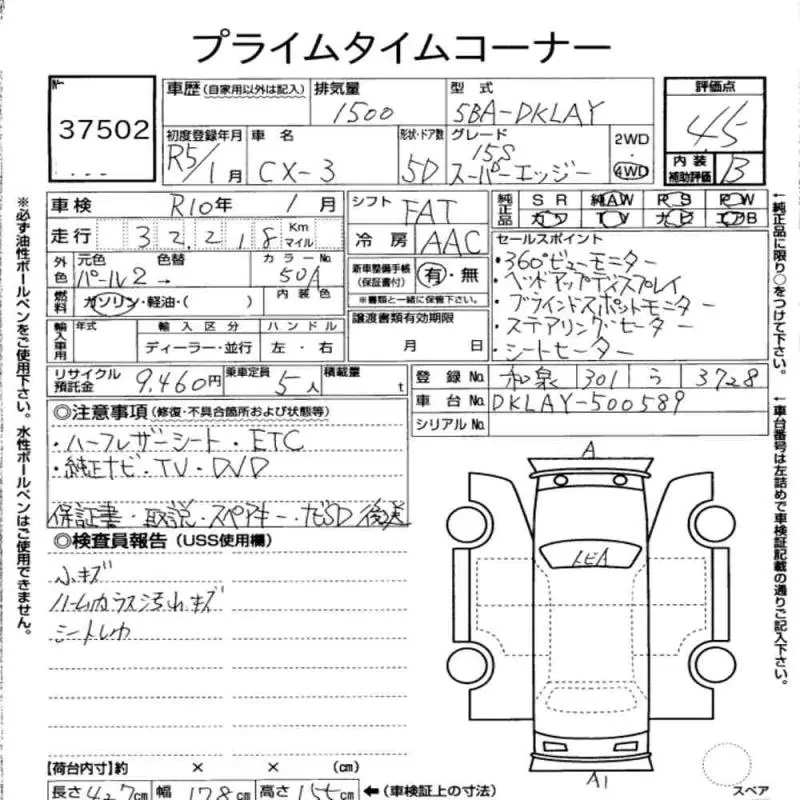 プライムタイムコーナー
No 37502
車歴 (自家用以外は記入)
排気量 1500
型式 5BA-DKLAY
評価点 4.5
初度登録年月 R5/1月
車名 CX-3
形状・ドア数 5D
グレード 15S スーパーエッジー
2WD
4WD
内装補助評価 B
車検 R10年 1月
シフト FAT
純正品 SR 純AW PS PW
カワ TV ナビ エアB
走行 32,218 Km マイル
冷房 AAC
セールスポイント
・360°ビューモニター
・ヘッドアップディスプレイ
・ブラインドスポットモニター
・ステアリング・ヒーター
・シートヒーター
外色 元色 パール2→ 色替 カラーNo 50A
新車整備手帳 (保証書付) 有・無
※書類と一緒に保管下さい。
燃料 ガソリン・軽油・( ) 内装色
輸入車用 年式 輸入区分 ディーラー・並行 ハンドル 左・右
譲渡書類有効期限 月 日
リサイクル預託金 9,460円 乗車定員 5人 積載量 t
登録No. 和泉 301 う 3728
車台No. DKLAY-500589
シリアルNo.
◎注意事項 (修復・不具合箇所および状態等)
・ハーフレザーシート・ETC
・純正ナビ・TV・DVD
保証書・取説・スペアキー・ナビSD 後送
◎検査員報告 (USS使用欄)
小キズ
シートしわ
A
トビA
A1
スペア
【荷台内寸】約 × × (cm)
長さ 427cm 幅 178cm 高さ 155cm ←(車検証上の寸法)
※必ず油性ボールペンをご使用下さい。水性ボールペンはご使用できません。
←純正品に限り○をつけて下さい。
←車台番号は左詰めで車検証記載の通りご記入下さい。